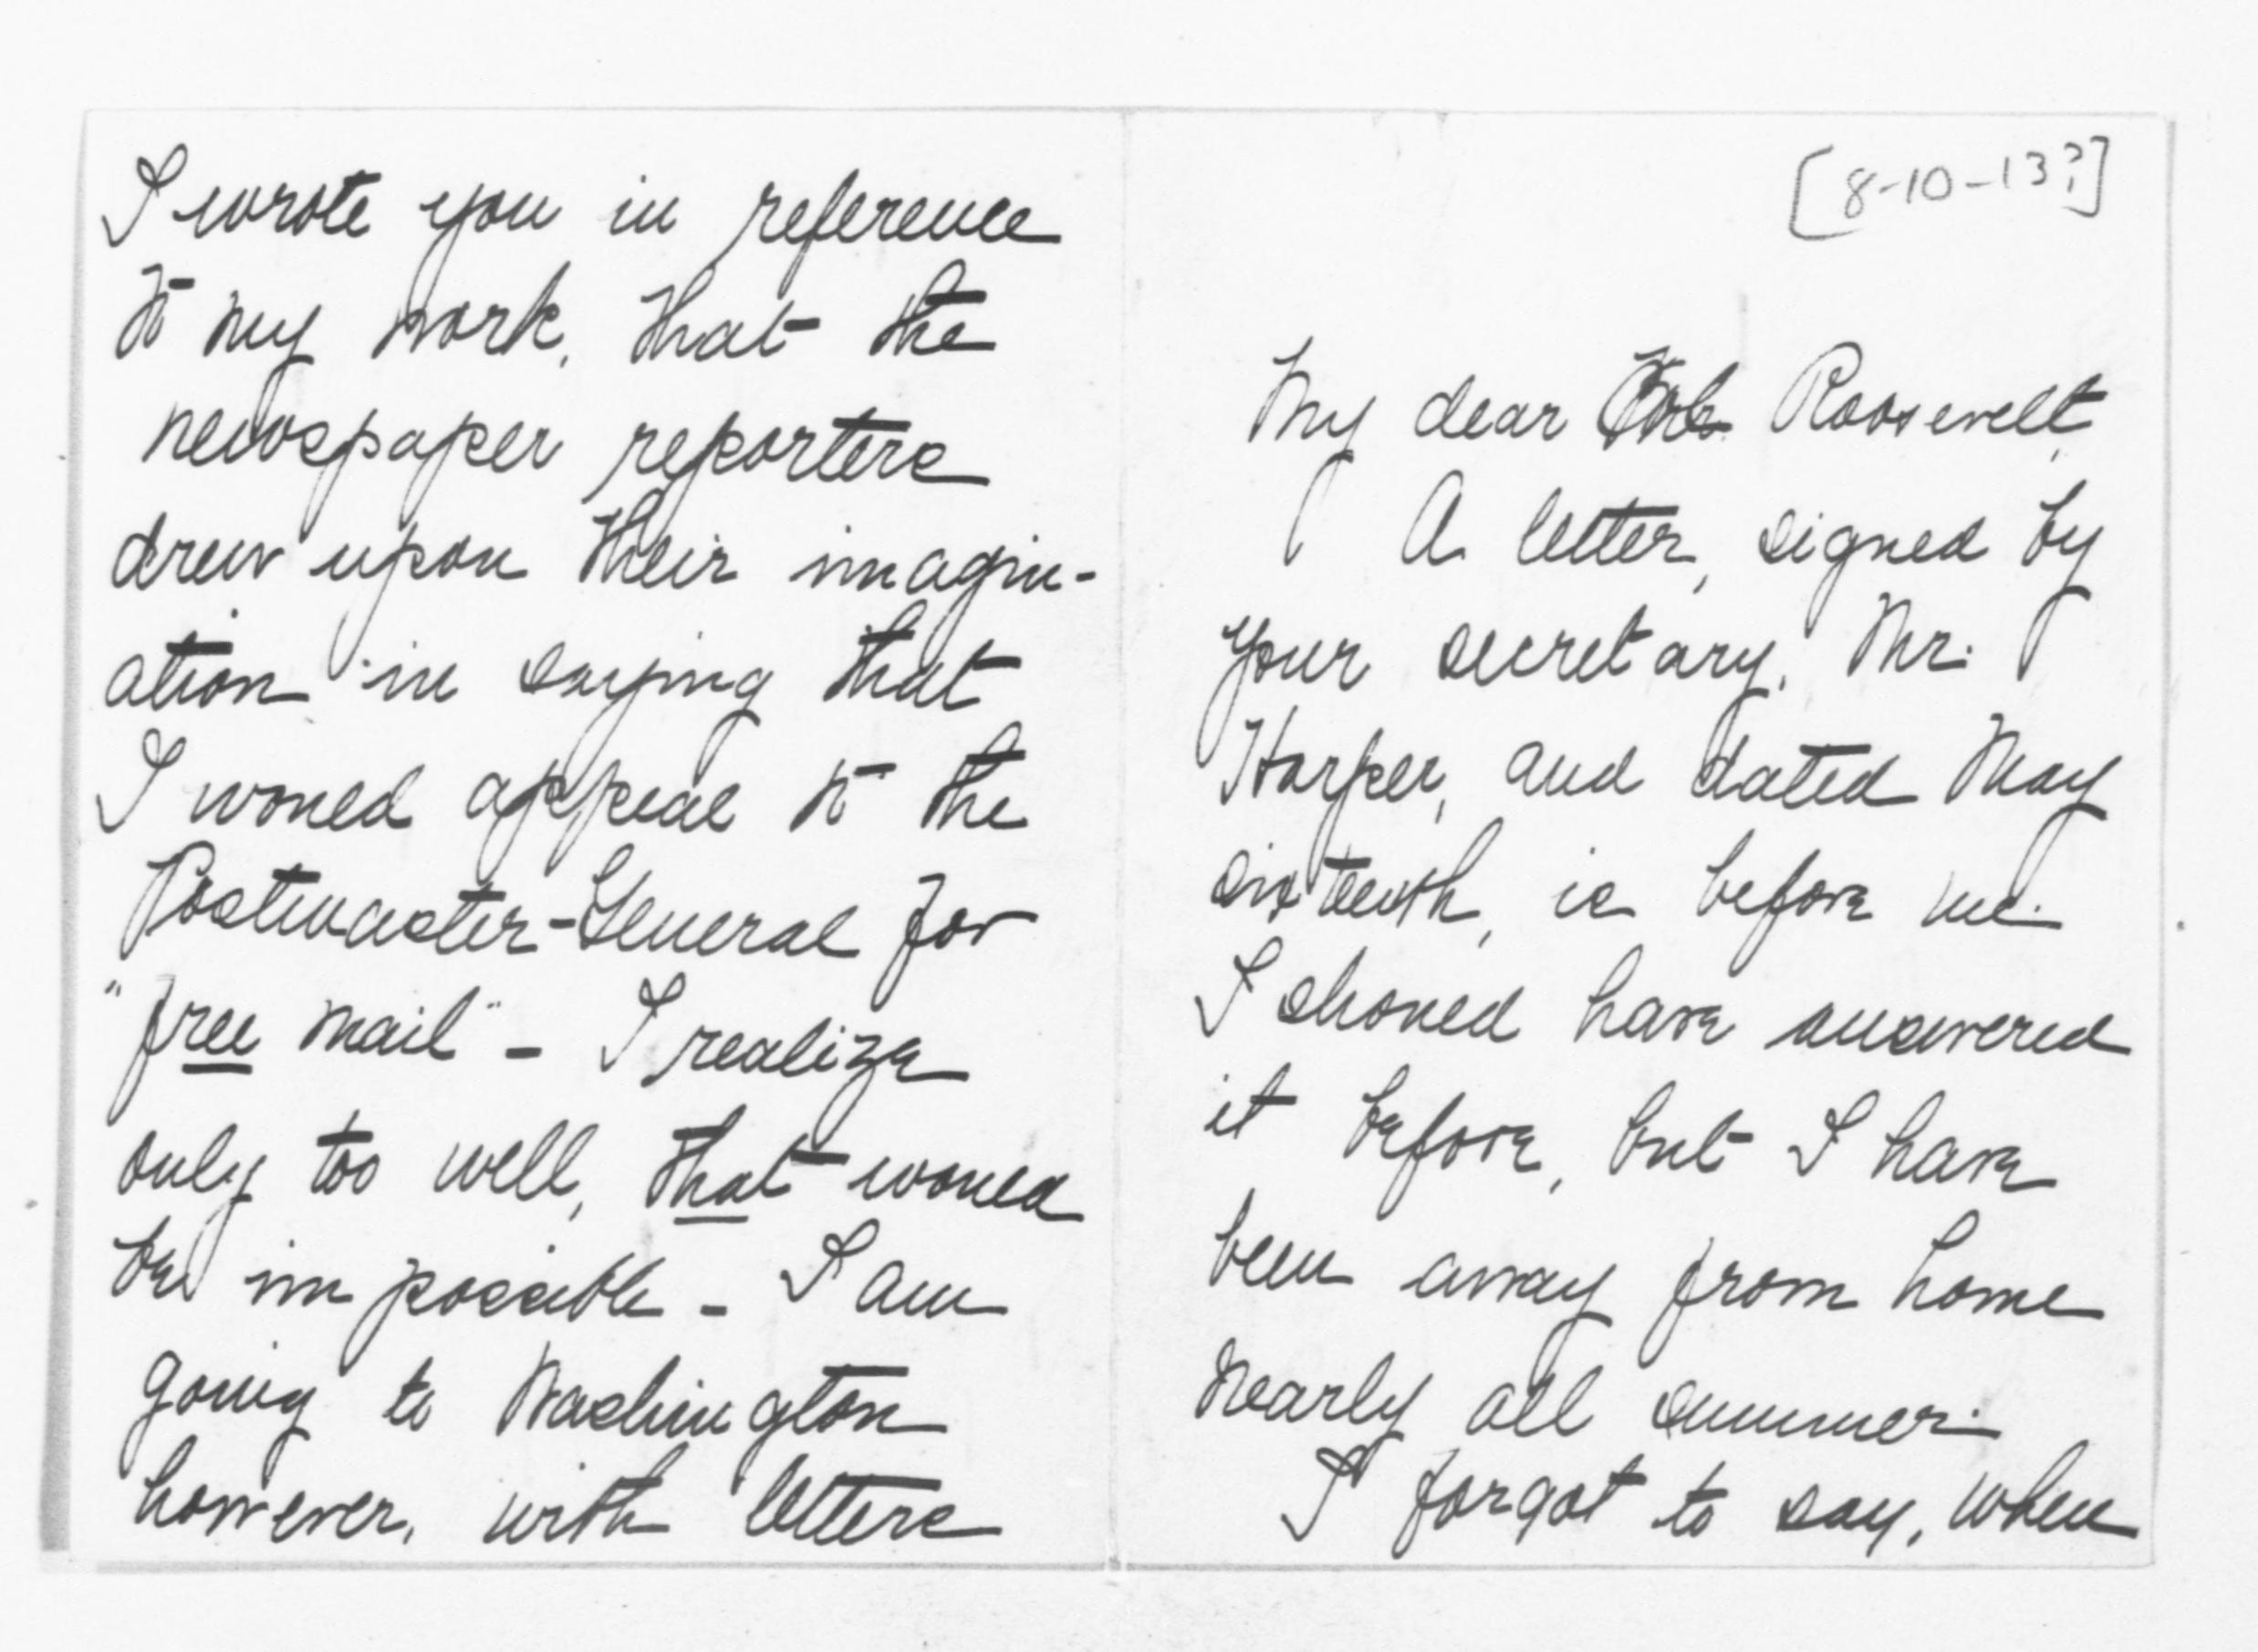 [8-10-13?]
My dear Col. Roosevelt,
A letter, signed by
your secretary, Mr.
Harper, and dated May
sixteenth, is before me.
I should have answered
it before, but I have
been away from home
nearly all summer.
I forgot to say, when
I wrote you in reference
to my work, that the
newspaper reporters
drew upon their imagin-
ation in saying that
I would appeal to the
Postmaster-General for
"free mail" - I realize
only too well, that would
be impossible - I am
going to Washington
however, with letters